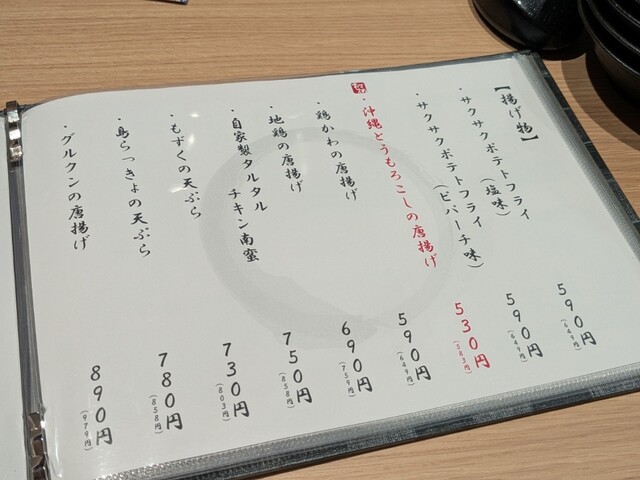 【揚げ物】
・サクサクポテトフライ
(塩味)
590円
(649円)
・サクサクポテトフライ
(ピパーチ味)
590円
(649円)
・沖縄とうもろこしの唐揚げ
530円
(583円)
・鶏かわの唐揚げ
590円
(649円)
・地鶏の唐揚げ
690円
(759円)
・自家製タルタル
チキン南蛮
750円
・もずくの天ぷら
730円
(803円)
・島らっきょの天ぷら
780円
(858円)
・グルクンの唐揚げ
890円
(979円)